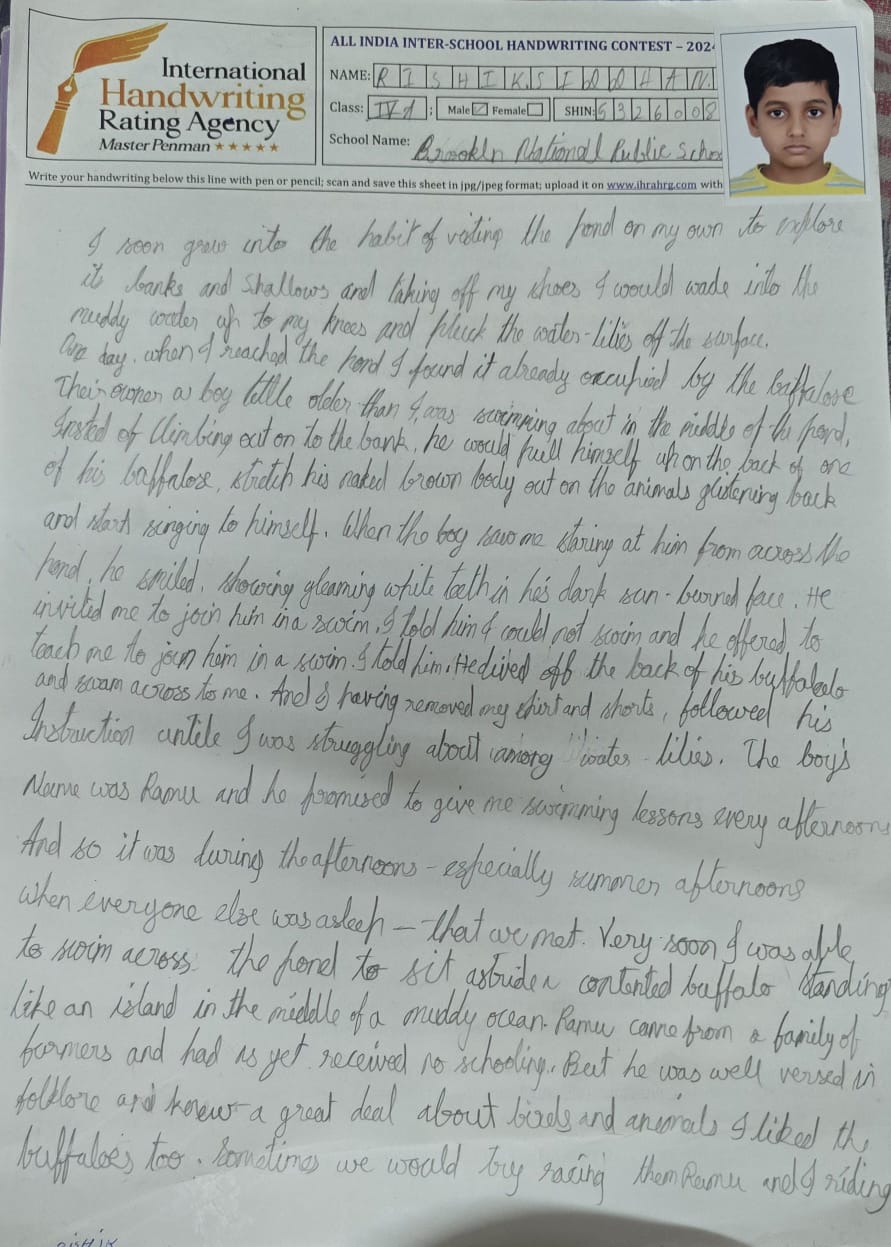 International
Handwriting
Rating Agency
Master Penman ★★★★★
ALL INDIA INTER-SCHOOL HANDWRITING CONTEST – 202
NAME: RISHIK SIDDHAN
Class: IV A ; Male Female SHIN: 6326008
School Name: Brookln National Public Scho
Write your handwriting below this line with pen or pencil; scan and save this sheet in jpg/jpeg format; upload it on www.ihrahrg.com with
I soon grew into the habit of visting the pond on my own to explore
it banks and Shallows and taking off my shoes I would wade into the
muddy water up to my knees and pluck the water-lilies off the surface.
One day. when I reached the pond I found it already occupied by the baffalose
Their owner a boy little older than I, was swimming about in the middle of the pond,
Insted of Climbing out on to the bank, he would pull himself up on the back of one
of his baffalose, stretch his naked brown body out on the animals glistening back
and start singing to himself. When the boy saw me staring at him from across the
pond, he smiled, showing gleaming white teeth in his dark sun-burned face. He
invited me to join him in a swim. I told him I could not swim and he offered to
teach me to join him in a swim. I told him. He dived off the back of his buffalo
and swam across to me. And I having removed my shirt and shorts, followed his
Instruction untile I was struggling about among water-lilies. The boy's
Name was Ramu and he promised to give me swimming lessons every afternoon
And so it was during the afternoons – especially summer afternoons
when everyone else was asleep – that we met. Very soon I was able
to swim across the pond to sit astride a contented buffalo standing
like an island in the middle of a muddy ocean. Ramu came from a family of
farmers and had as yet received no schooling. But he was well versed in
folklore and knew a great deal about birds and animals I liked th
buffaloes too. Sometimes we would try racing them Ramu and I riding